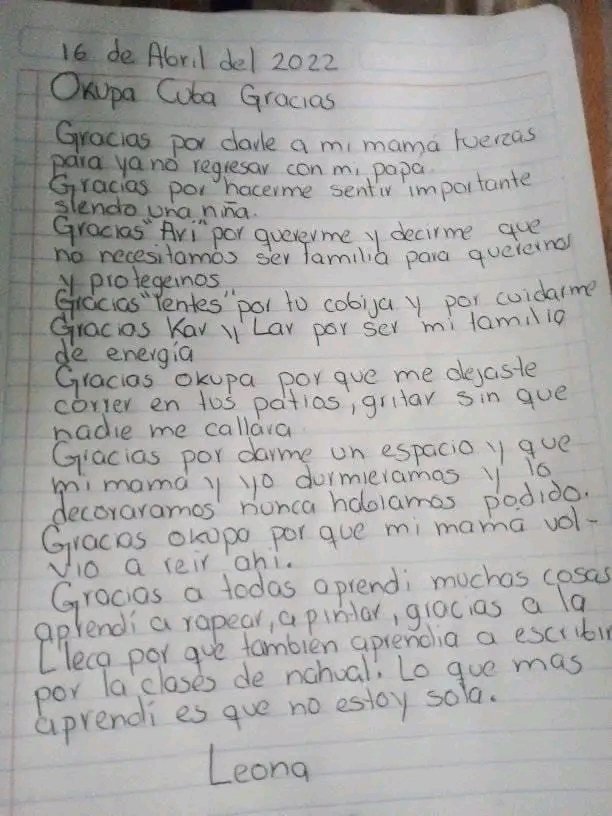 16 de Abril del 2022
Okupa Cuba Gracias
Gracias por darle a mi mamá fuerzas
para ya no regresar con mi papa.
Gracias por hacerme sentir importante
siendo una niña.
Gracias "Avi" por quererme y decirme que
no necesitamos ser familia para querernos
y protegernos
Gracias "lentes" por tu cobija y por cuidarme
Gracias Kav y Lav por ser mi familia
de energía
Gracias okupa por que me dejaste
correr en tus patios, gritar sin que
nadie me callara
Gracias por darme un espacio y que
mi mamá y yo durmieramos y lo
decoraramos nunca habiamos podido.
Gracias okupa por que mi mamá vol-
vio a reir ahí.
Gracias a todas aprendi muchas cosas
aprendí a rapear, a pintar, gracias a la
Lleca por que tambien aprendia a escribir
por la clases de nahual. Lo que mas
aprendí es que no estoy sola.
Leona